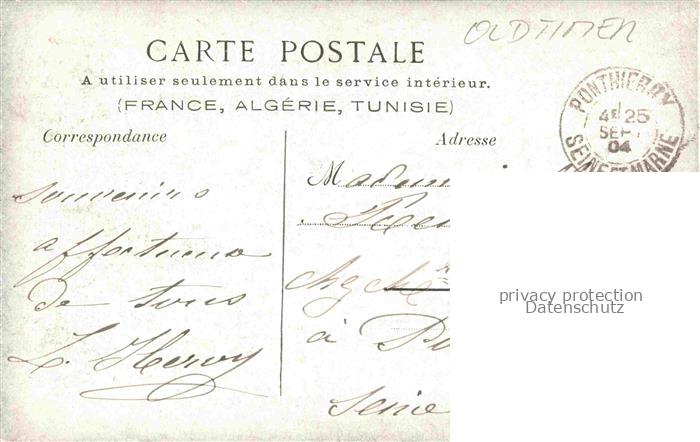 OLDTIMER
CARTE POSTALE
A utiliser seulement dans le service intérieur.
(FRANCE, ALGÉRIE, TUNISIE)
PONTHIERRY
4E 25
SEPT
04
SEINE-ET-MARNE
Correspondance
Souvenirs
affectueux
de tous
L. Hervy
Adresse
Madam
à
Seine
privacy protection
Datenschutz